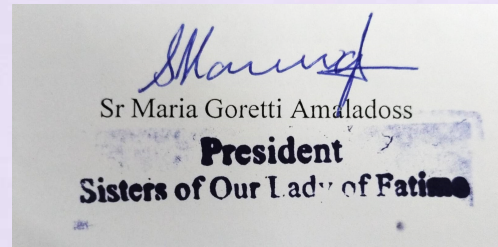 Sr Maria Goretti Amaladoss
President
Sisters of Our Lady of Fatima